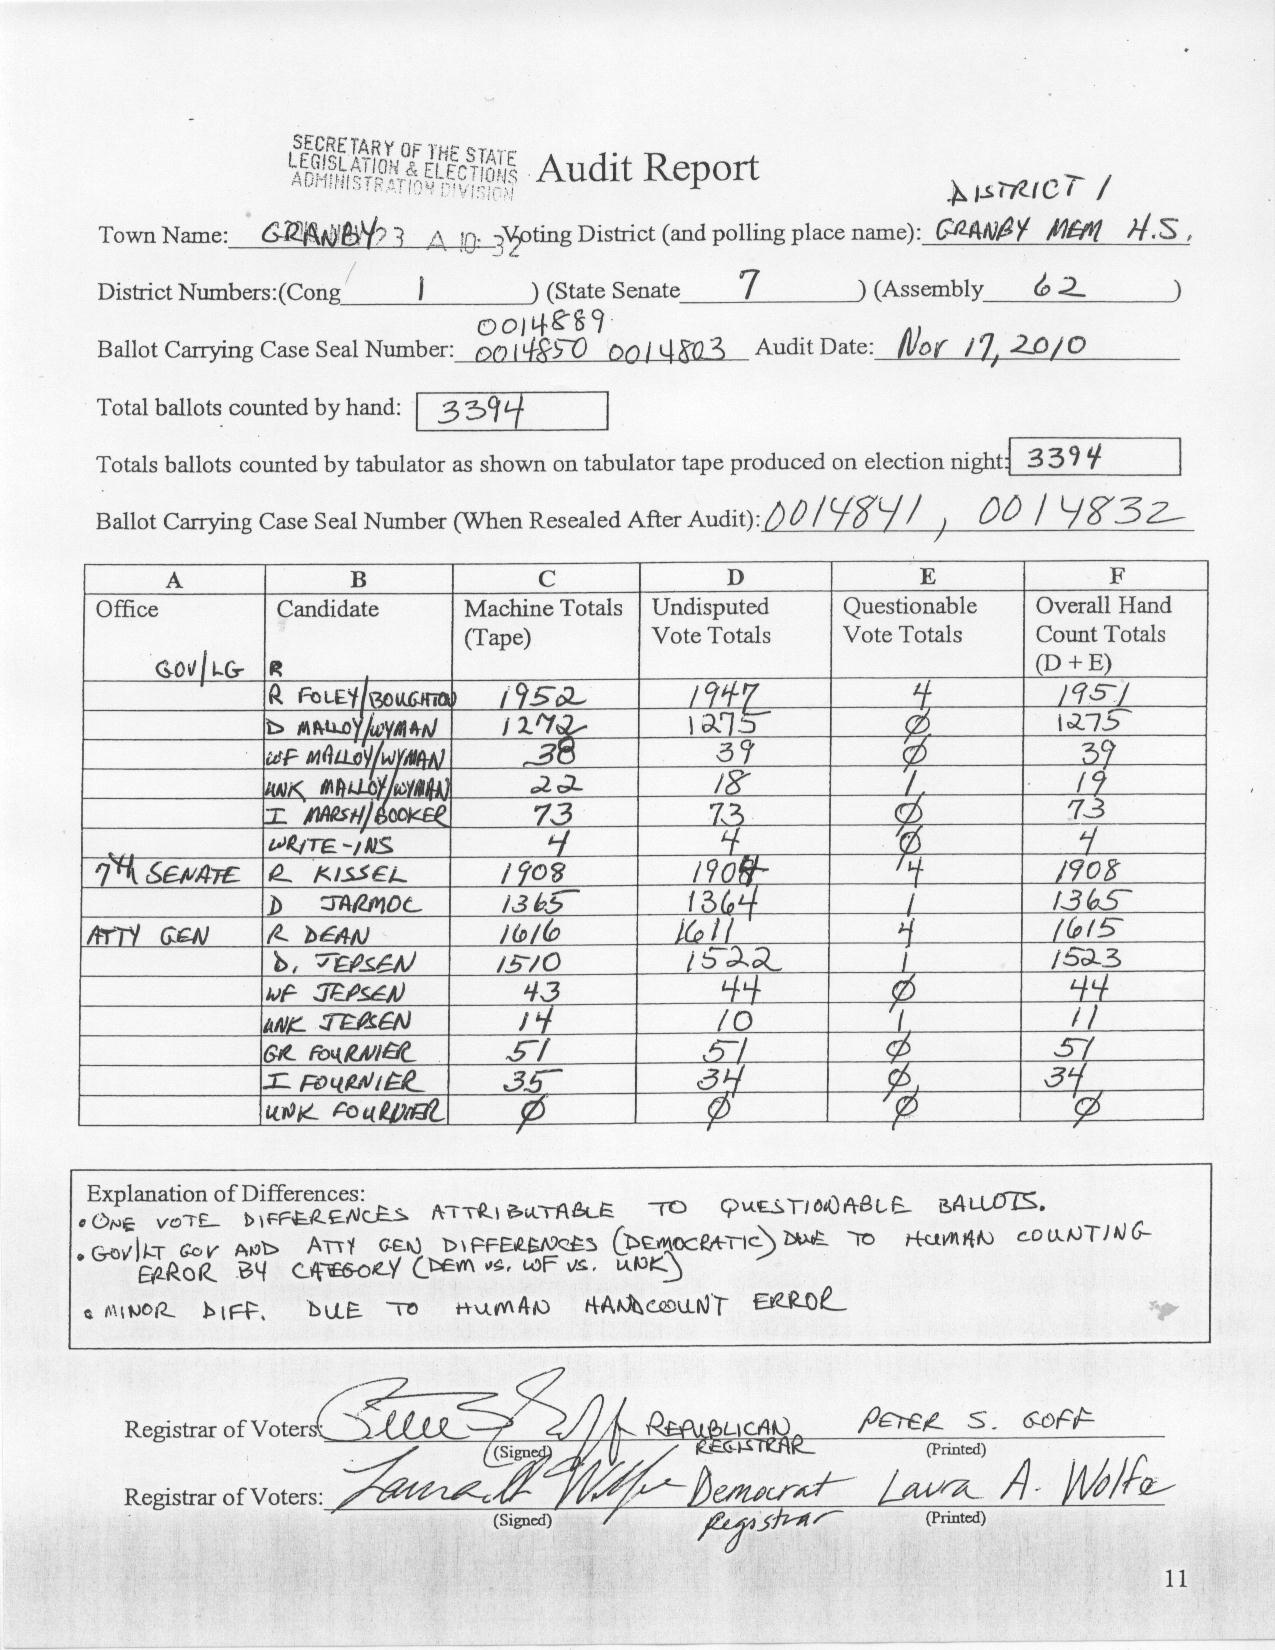 SECRETARY OF THE STATE
LEGISLATION & ELECTIONS
ADMINISTRATION DIVISION
Audit Report
DISTRICT 1
Town Name: GRANBY 23 A 10: 32 Voting District (and polling place name): GRANBY MEM H.S.
District Numbers:(Cong 1 ) (State Senate 7 ) (Assembly 62 )
0014889
Ballot Carrying Case Seal Number: 0014850 0014803 Audit Date: Nov 17, 2010
Total ballots counted by hand: 3394
Totals ballots counted by tabulator as shown on tabulator tape produced on election night: 3394
Ballot Carrying Case Seal Number (When Resealed After Audit): 0014841, 0014832
A B C D E F
Office Candidate Machine Totals Undisputed Questionable Overall Hand
(Tape) Vote Totals Vote Totals Count Totals
GOV/LG R (D + E)
R FOLEY/BOUGHTON 1952 1947 4 1951
D MALLOY/WYMAN 1272 1275 Ø 1275
WF MALLOY/WYMAN 38 39 Ø 39
UNK MALLOY/WYMAN 22 18 1 19
I MARSH/BOOKER 73 73 Ø 73
WRITE-INS 4 4 Ø 4
7th SENATE R KISSEL 1908 1904 4 1908
D JARMOC 1365 1364 1 1365
ATTY GEN R DEAN 1616 1611 4 1615
D. JEPSEN 1510 1522 1 1523
WF JEPSEN 43 44 Ø 44
UNK JEPSEN 14 10 1 11
GR FOURNIER 51 51 Ø 51
I FOURNIER 35 34 Ø 34
UNK FOURNIER Ø Ø Ø Ø
Explanation of Differences:
• ONE VOTE DIFFERENCES ATTRIBUTABLE TO QUESTIONABLE BALLOTS.
• GOV/LT GOV AND ATTY GEN DIFFERENCES (DEMOCRATIC) DUE TO HUMAN COUNTING
ERROR BY CATEGORY (DEM vs. WF vs. UNK)
• MINOR DIFF. DUE TO HUMAN HANDCOUNT ERROR
Registrar of Voters: REPUBLICAN PETER S. GOFF
(Signed) REGISTRAR (Printed)
Registrar of Voters: Laura A Wolfe Democrat Laura A. Wolfe
(Signed) Registrar (Printed)
11